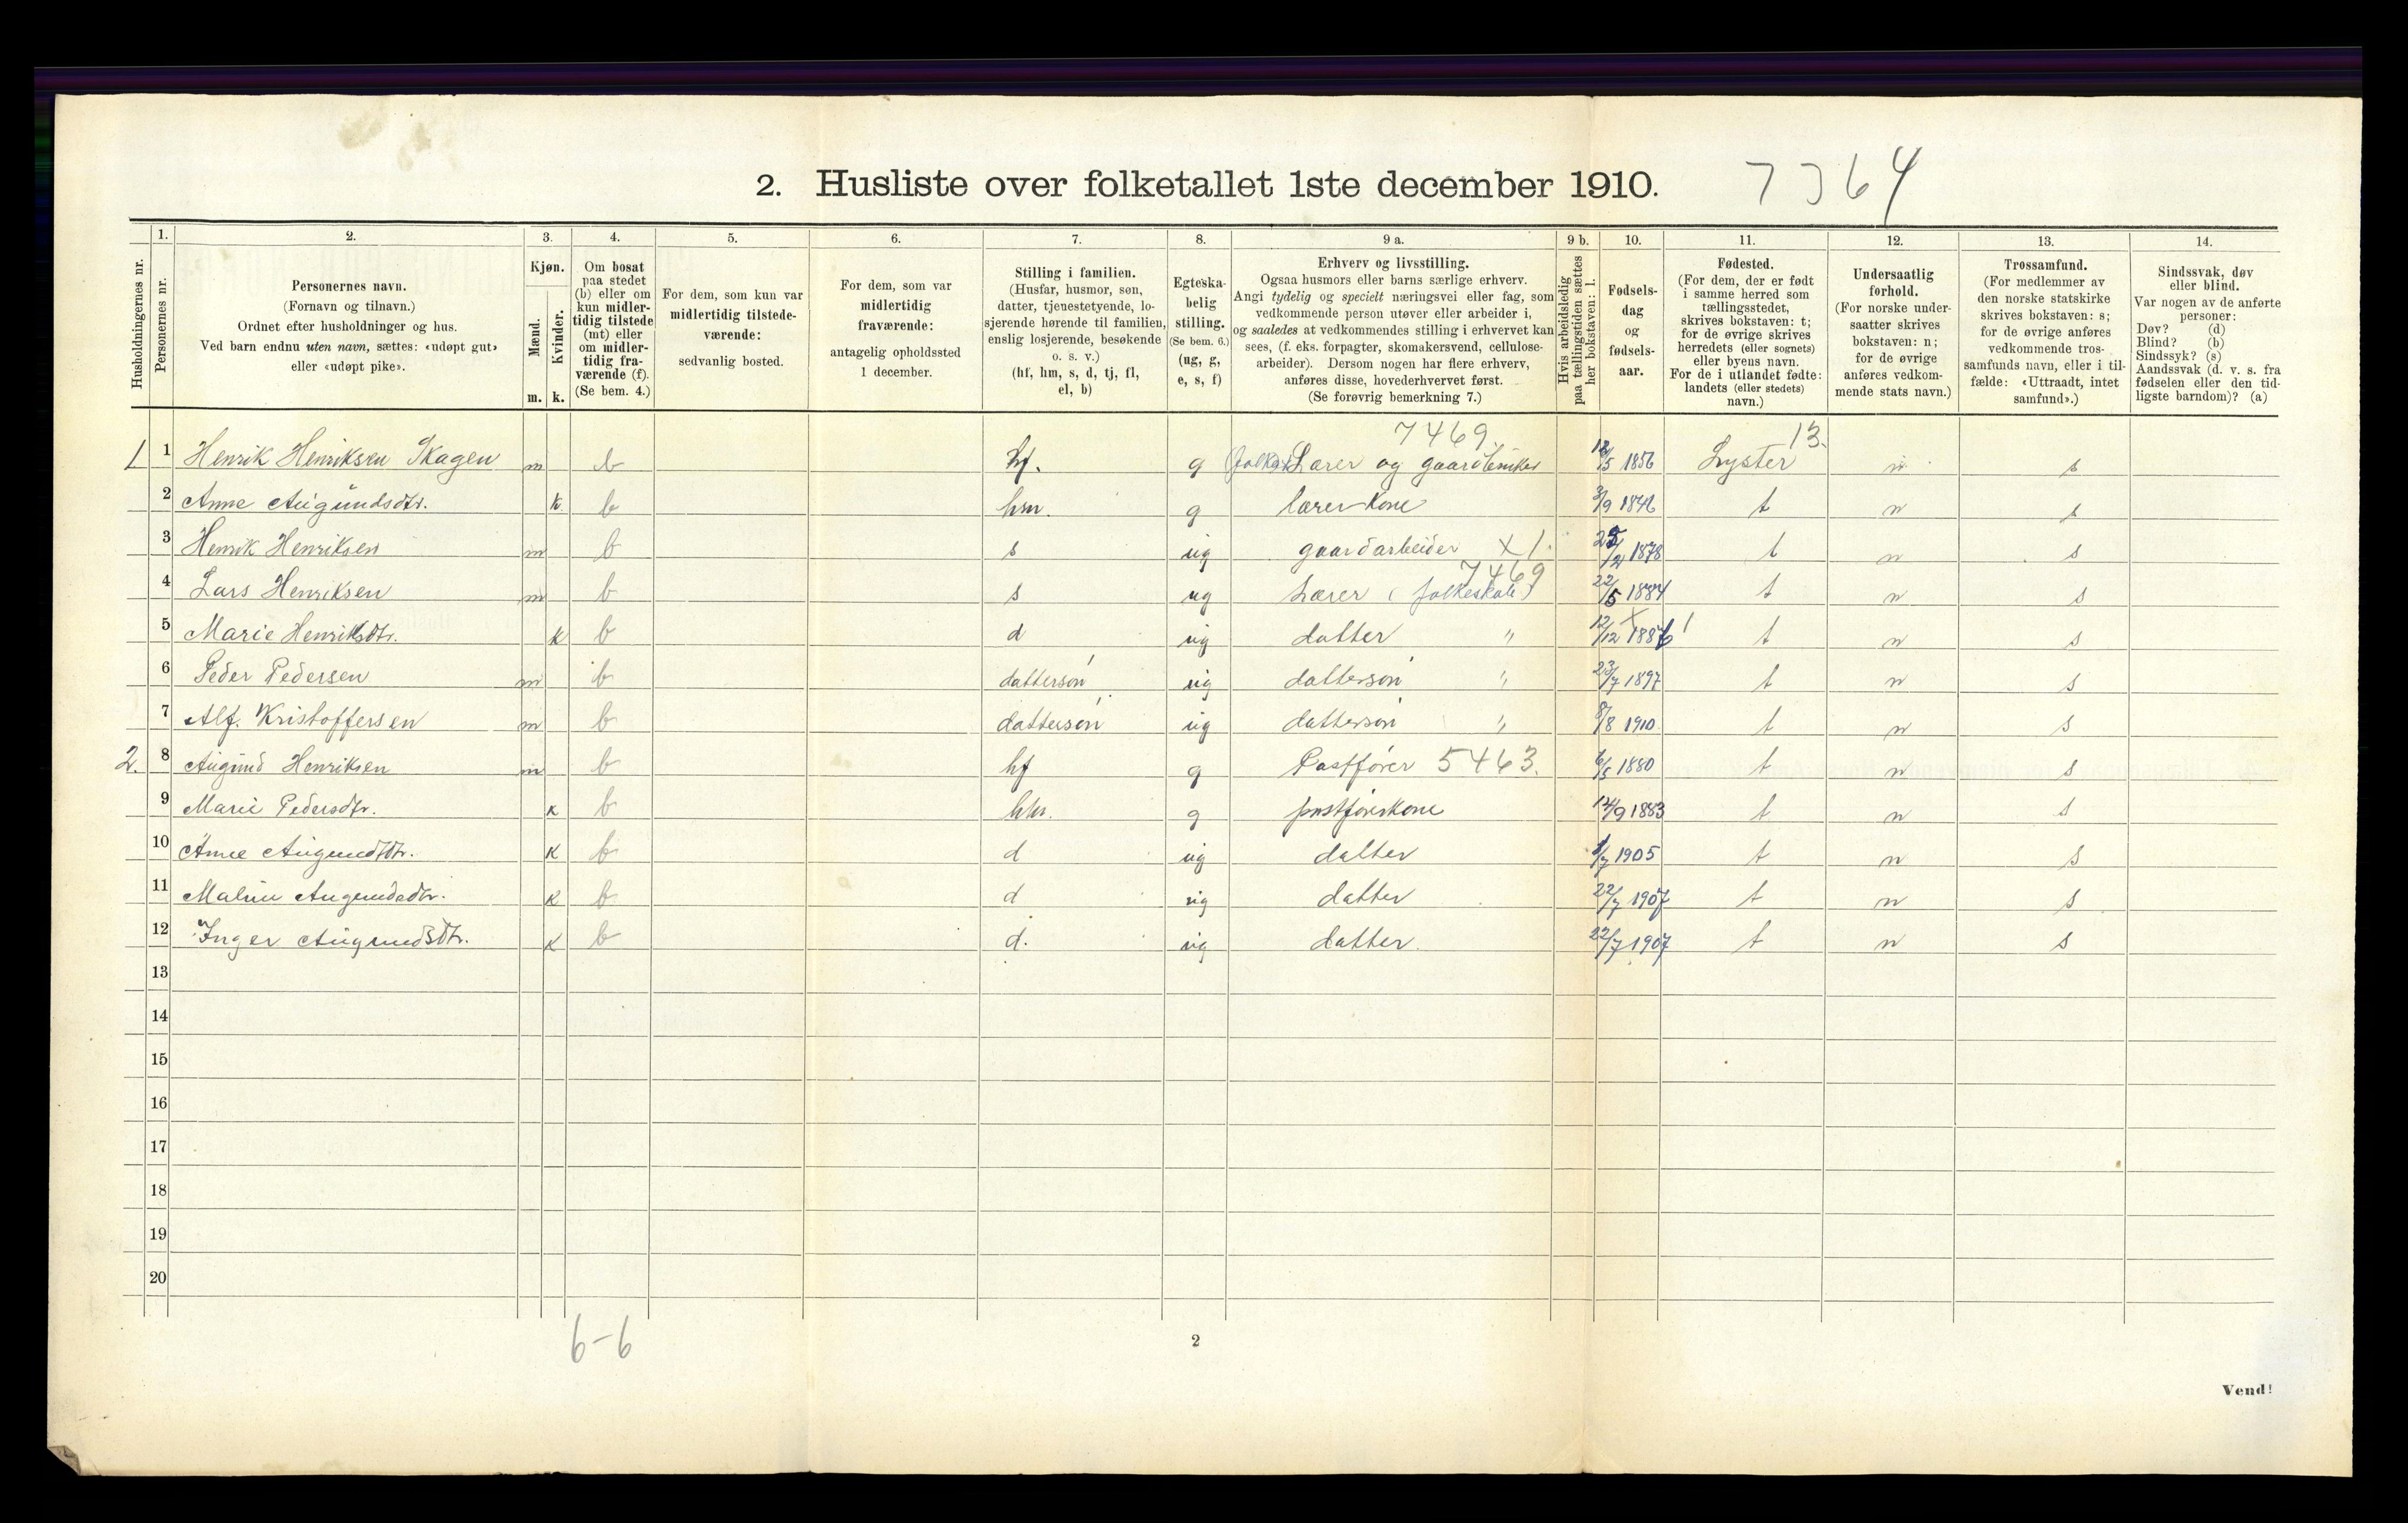 2. Husliste over folketallet 1ste december 1910. 7364
1. 2. 3. 4. 5. 6. 7. 8. 9 a. 9 b. 10. 11. 12. 13. 14.
Husholdningernes nr.
Personernes nr.
Personernes navn.
(Fornavn og tilnavn.)
Ordnet efter husholdninger og hus.
Ved barn endnu uten navn, sættes: «udøpt gut»
eller «udøpt pike».
Kjøn.
Mænd.
Kvinder.
m. k.
Om bosat
paa stedet
(b) eller om
kun midler-
tidig tilstede
(mt) eller
om midler-
tidig fra-
værende (f).
(Se bem. 4.)
For dem, som kun var
midlertidig tilstede-
værende:
sedvanlig bosted.
For dem, som var
midlertidig
fraværende:
antagelig opholdssted
1 december.
Stilling i familien.
(Husfar, husmor, søn,
datter, tjenestetyende, lo-
sjerende hørende til familien,
enslig losjerende, besøkende
o. s. v.)
(hf, hm, s, d, tj, fl,
el, b)
Egteska-
belig
stilling.
(Se bem. 6.)
(ug, g,
e, s, f)
Erhverv og livsstilling.
Ogsaa husmors eller barns særlige erhverv.
Angi tydelig og specielt næringsvei eller fag, som
vedkommende person utøver eller arbeider i,
og saaledes at vedkommendes stilling i erhvervet kan
sees, (f. eks. forpagter, skomakersvend, cellulose-
arbeider). Dersom nogen har flere erhverv,
anføres disse, hovederhvervet først.
(Se forøvrig bemerkning 7.)
Hvis arbeidsledig
paa tællingstiden sættes
her bokstaven: l.
Fødsels-
dag
og
fødsels-
aar.
Fødested.
(For dem, der er født
i samme herred som
tællingsstedet,
skrives bokstaven: t;
for de øvrige skrives
herredets (eller sognets)
eller byens navn.
For de i utlandet fødte:
landets (eller stedets)
navn.)
Undersaatlig
forhold.
(For norske under-
saatter skrives
bokstaven: n;
for de øvrige
anføres vedkom-
mende stats navn.)
Trossamfund.
(For medlemmer av
den norske statskirke
skrives bokstaven: s;
for de øvrige anføres
vedkommende tros-
samfunds navn, eller i til-
fælde: «Uttraadt, intet
samfund».)
Sindssvak, døv
eller blind.
Var nogen av de anførte
personer:
Døv? (d)
Blind? (b)
Sindssyk? (s)
Aandssvak (d. v. s. fra
fødselen eller den tid-
ligste barndom)? (a)
7469. 13.
1 1 Henrik Henriksen Skagen m b hf. g Lærer og gaardbruker 12/5 1856 Lyster n s
2 Anne Augundsdtr. k b hm. g lærerkone 3/9 1846 t n s
3 Henrik Henriksen m b s ug gaardarbeider X 1. 1878 t n s
7469
4 Lars Henriksen m b s ug Lærer (folkeskole) 22/5 1884 t n s
5 Marie Henriksdtr. k b d ug datter " 12/12 1886 t n s
6 Peder Pedersen m b dattersøn ug dattersøn " 23/7 1897 t n s
7 Alf. Kristoffersen m b dattersøn ug dattersøn " 8/8 1910 t n s
2. 8 Augund Henriksen m b hf g Postfører 5463. 6/5 1880 t n s
9 Marie Pedersdtr. k b hm. g postførerkone 1883 t n s
10 Anne Augundsdtr. k b d ug datter 1/7 1905 t n s
11 Malene Augundsdtr. k b d ug datter 22/7 1907 t n s
12 Inger Augundsdtr. k b d. ug datter. 22/7 1907 t n s
13
14
15
16
17
18
19
20
6-6
2
Vend!